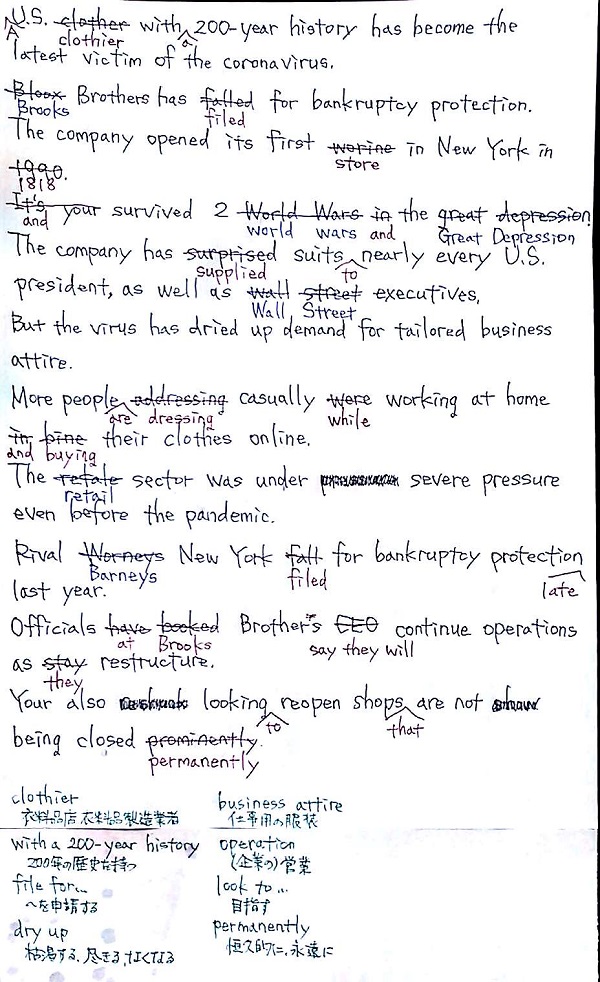 U.S. clother with 200-year history has become the
A clothier a
latest victim of the coronavirus.
Bloox Brothers has falled for bankruptcy protection.
Brooks filed
The company opened its first worine in New York in
store
1990.
1818
It's your survived 2 World Wars in the great depression
and world wars and Great Depression
The company has surprised suits nearly every U.S.
supplied to
president, as well as wall street executives,
Wall Street
But the virus has dried up demand for tailored business
attire.
More people addressing casually were working at home
are dressing while
in bine their clothes online.
and buying
The retale sector was under severe pressure
retail
even before the pandemic.
Rival Worneys New York fall for bankruptcy protection
Barneys filed late
last year.
Officials have booked Brother's CEO continue operations
at Brooks say they will
as stay restructure.
they
Your also looking reopen shops are not show
to that
being closed prominently.
permanently
clothier
衣料品店,衣料品製造業者
business attire
仕事用の服装
with a 200-year history
200年の歴史を持つ
operation
(企業の)営業
file for...
〜を申請する
look to...
目指す
dry up
枯渇する,尽きる,なくなる
permanently
恒久的に,永遠に